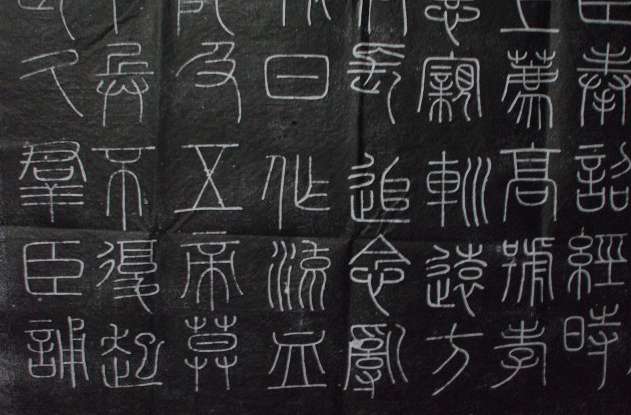 臣奉詔經時
上薦高號孝
惠親巡遠方
長追念亂
日作流血
及五帝莫
兵不復起
久群臣誦